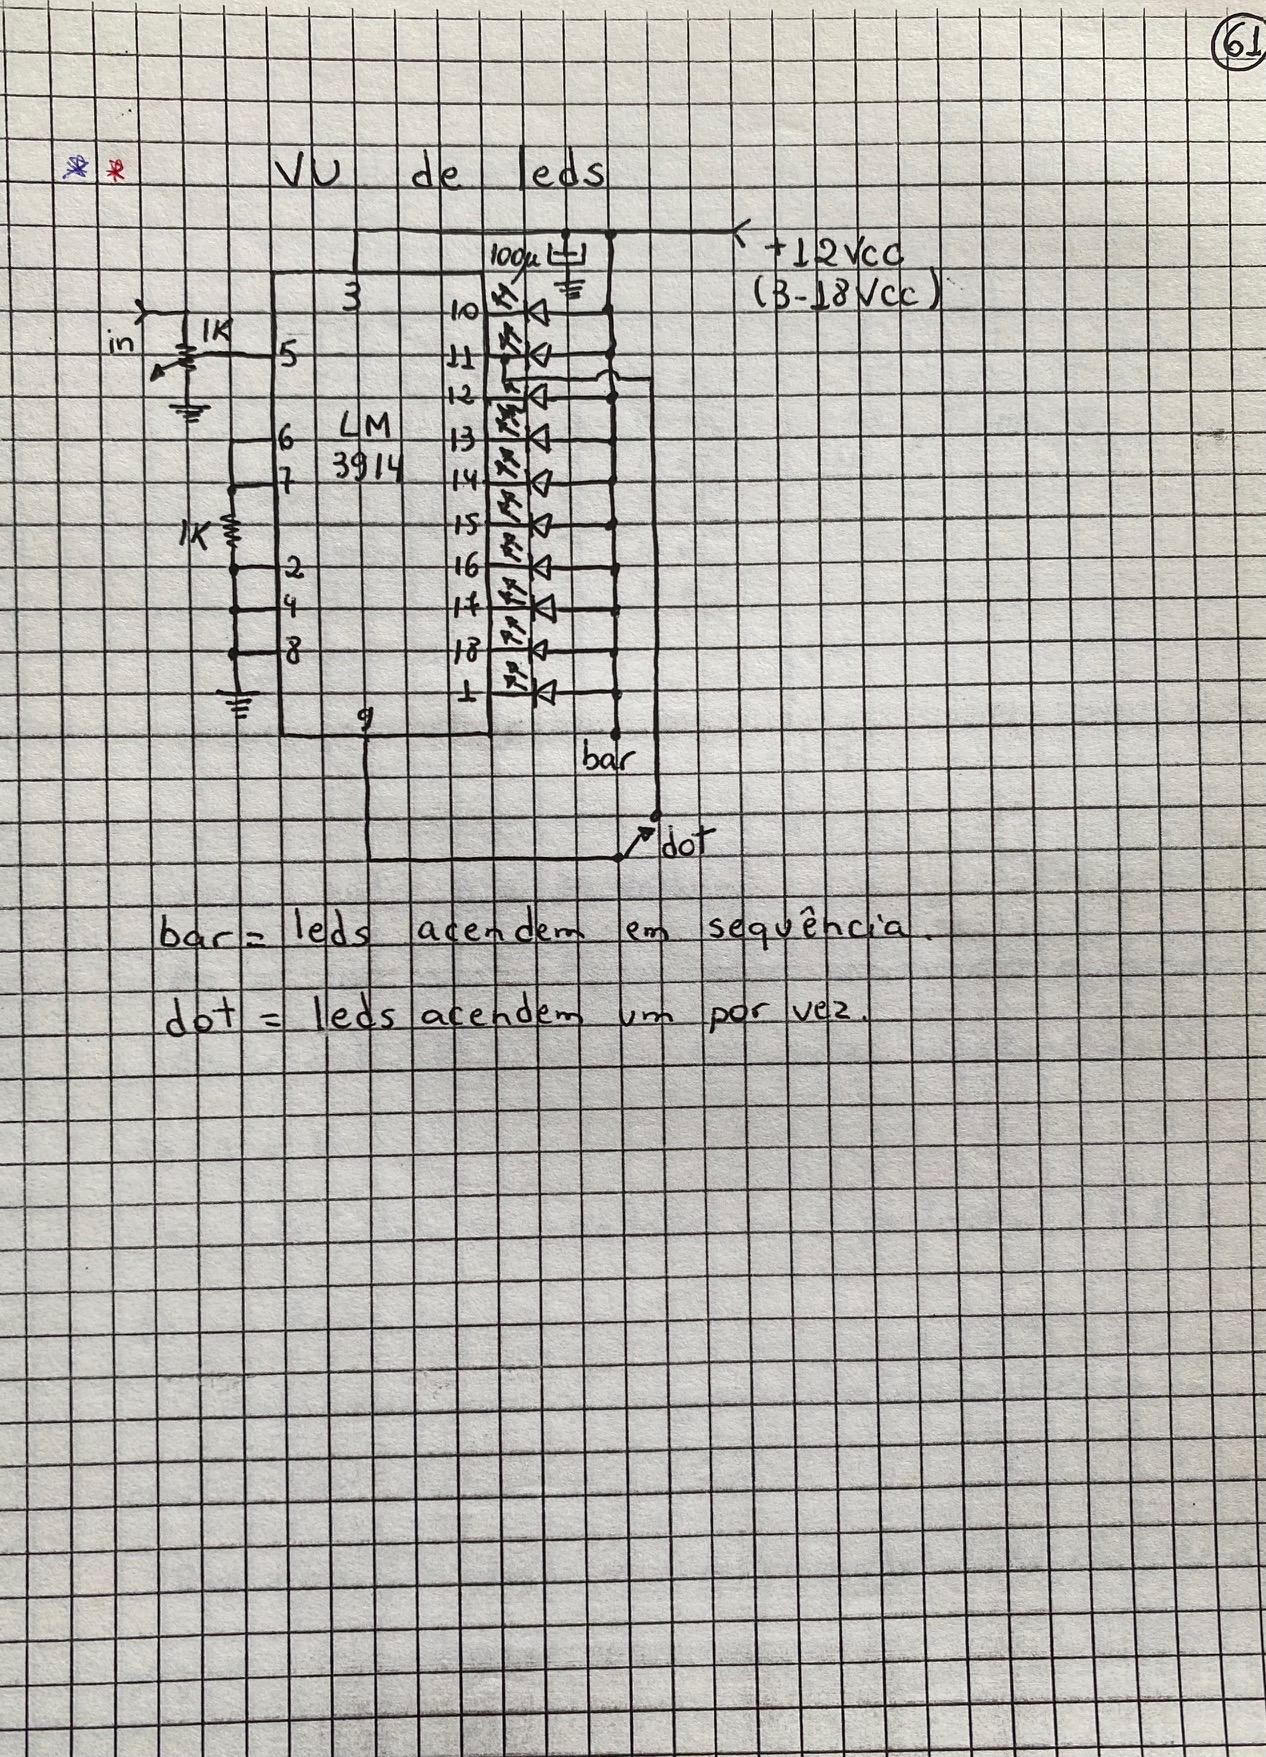 61
* * VU de leds
100µ
+12Vcc
(3-18Vcc)
3
in
1K
5
6
7
1K
2
4
8
LM
3914
10
11
12
13
14
15
16
17
18
1
9
bar
dot
bar = leds acendem em sequência.
dot = leds acendem um por vez.